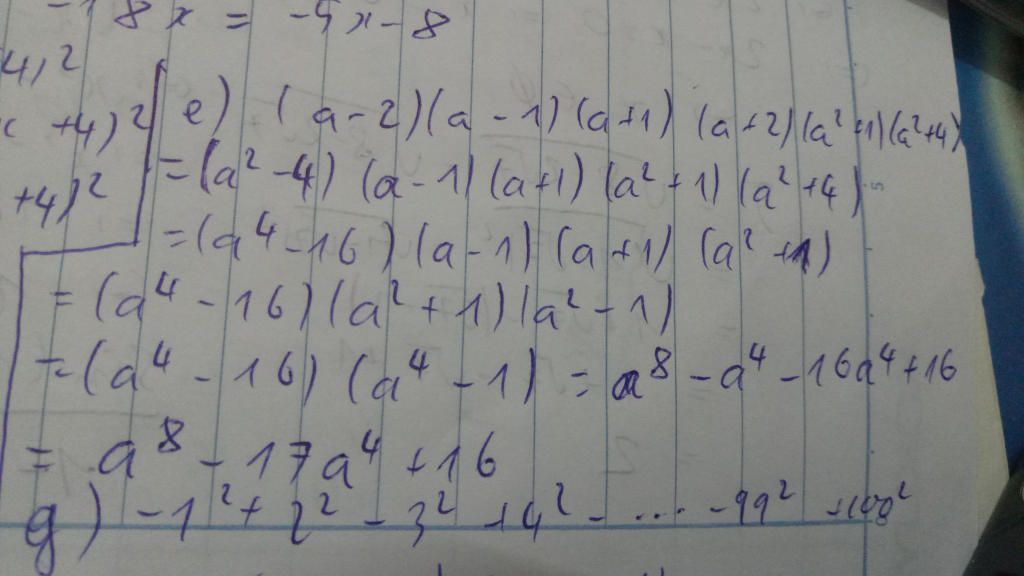 -18x = -5x-8
4)²
+4)²
+4)²
e) (a-2)(a-1)(a+1)(a+2)(a²+1)(a²+4)
=(a²-4)(a-1)(a+1)(a²+1)(a²+4)
=(a⁴-16)(a-1)(a+1)(a²+1)
=(a⁴-16)(a²+1)(a²-1)
=(a⁴-16)(a⁴-1)=a⁸-a⁴-16a⁴+16
=a⁸-17a⁴+16
g) -1²+2²-3²+4²-....-99²+100²